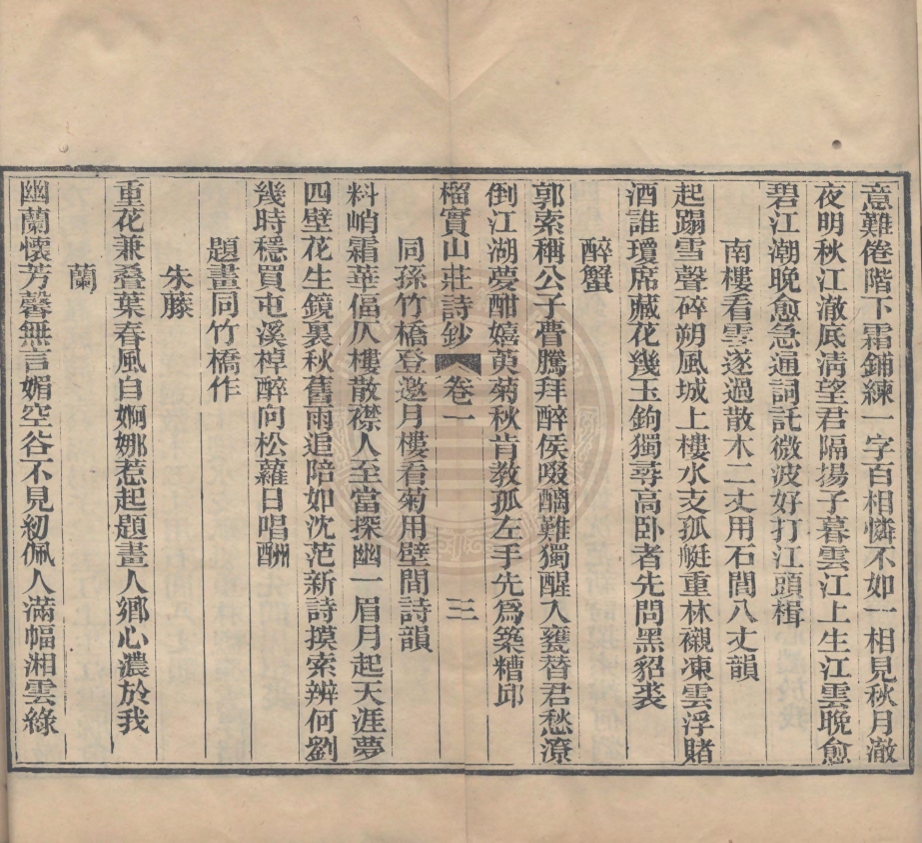 意難倦階下霜鋪練一字百相憐不如一相見秋月澈
夜明秋江澈底清望君隔揚子暮雲江上生江雲晚愈
碧江潮晚愈急通詞託微波好打江頭楫
南樓看雪遂過散木二丈用石間八丈韻
起蹋雪聲碎朔風城上樓水支孤艇重林襯凍雲浮賭
酒誰瓊席藏花幾玉鉤獨尋高卧者先問黑貂裘
醉蟹
郭索稱公子瞢騰拜醉侯啜醨難獨醒入甕替君愁潦
倒江湖夢酣嬉萸菊秋肯教孤左手先爲築糟邱
榴實山莊詩鈔 卷一 三
同孫竹橋登邀月樓看菊用壁間詩韻
料峭霜華偪仄樓散襟人至當探幽一眉月起天涯夢
四壁花生鏡裏秋舊雨追陪如沈范新詩摸索辨何劉
幾時穩買屯溪棹醉向松蘿日唱酬
題畫同竹橋作
朱藤
重花兼叠葉春風自婀娜惹起題畫人鄉心濃於我
蘭
幽蘭懷芳馨無言媚空谷不見紉佩人滿幅湘雲綠